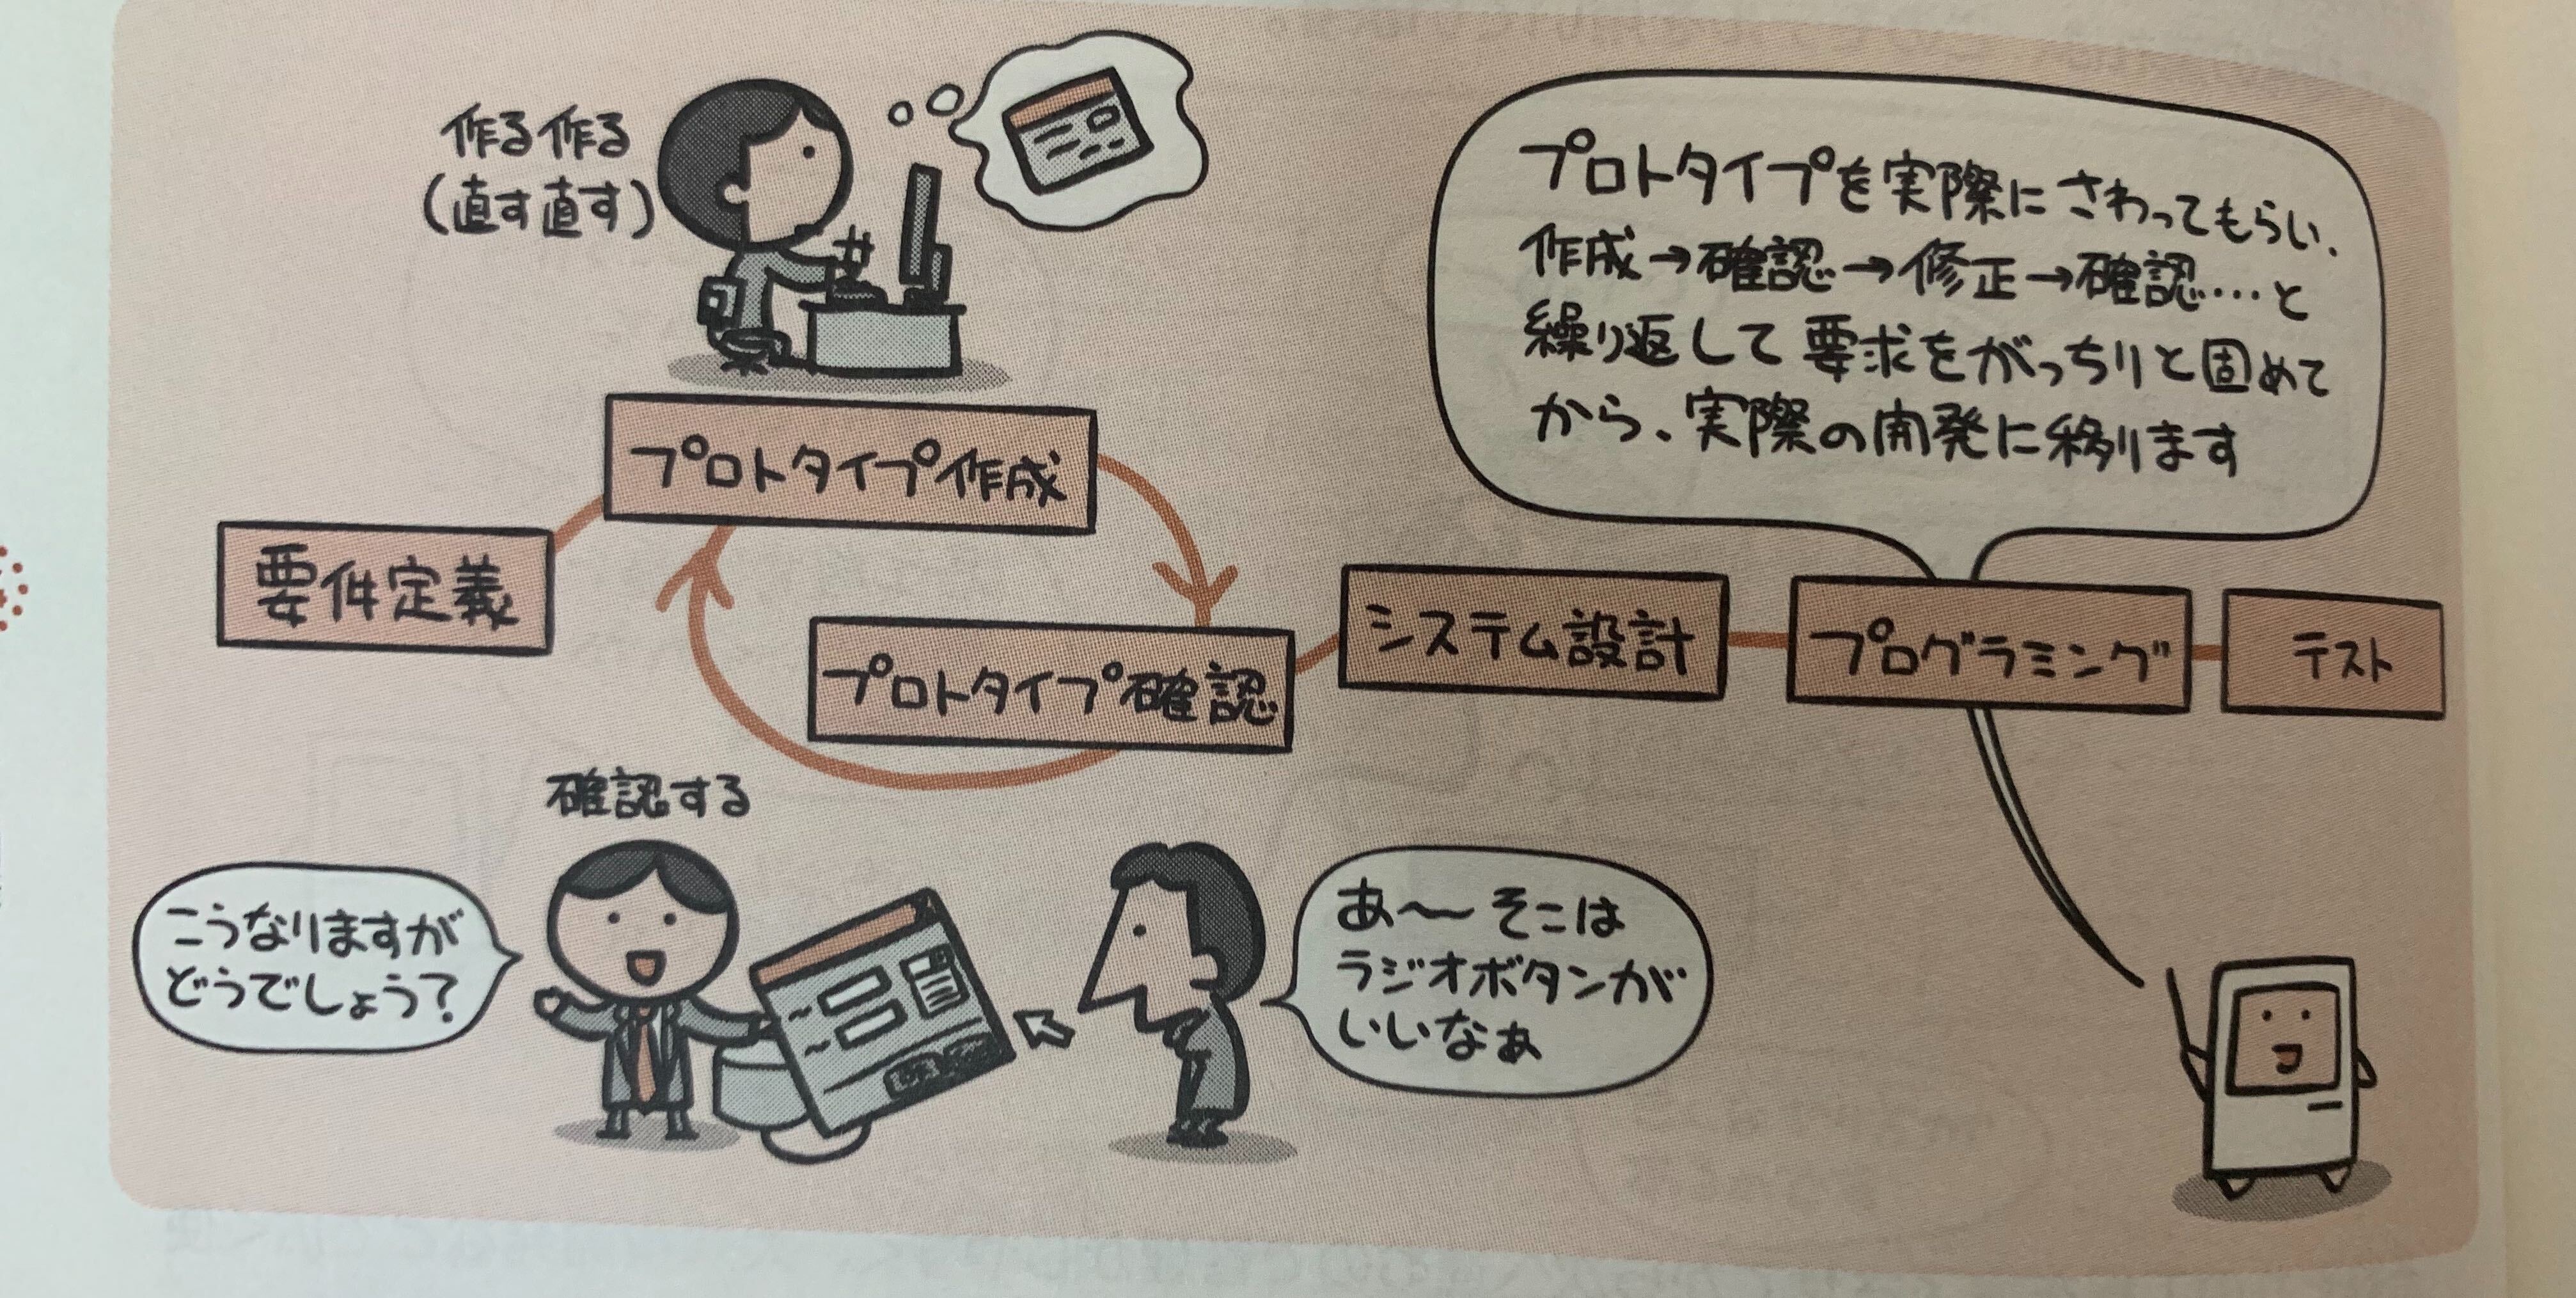 作る作る
(直す直す)
プロトタイプを実際にさわってもらい、
作成→確認→修正→確認…と
繰り返して要求をがっちりと固めて
から、実際の開発に移ります
プロトタイプ作成
要件定義
プロトタイプ確認
システム設計
プログラミング
テスト
確認する
こうなりますが
どうでしょう?
あ〜〜そこは
ラジオボタンが
いいなぁ